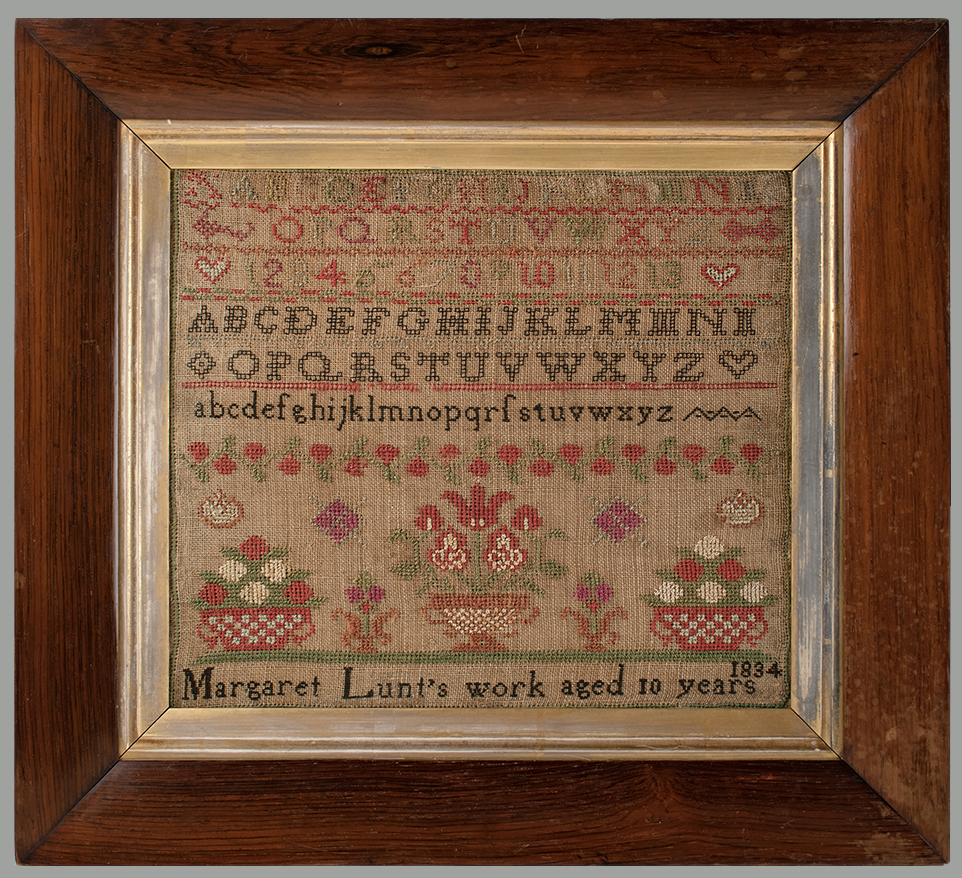 O P Q R S T U V W X Y Z
1 2 3 4 5 6 7 8 9 10 11 12 13
A B C D E F G H I J K L M N I
O P Q R S T U V W X Y Z
abcdefghijklmnopqrſstuvwxyz
1834
Margaret Lunt's work aged 10 years